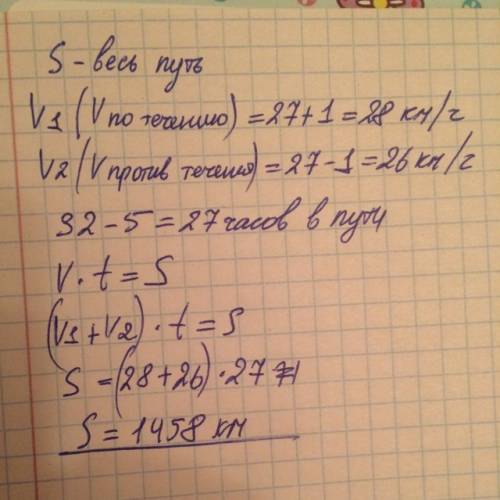 S - весь путь
V1 (V по течению) = 27+1 = 28 км/ч
V2 (V против течения) = 27-1 = 26 км/ч
32 - 5 = 27 часов в пути
V · t = S
(V1 + V2) · t = S
S = (28+26) · 27
S = 1458 км